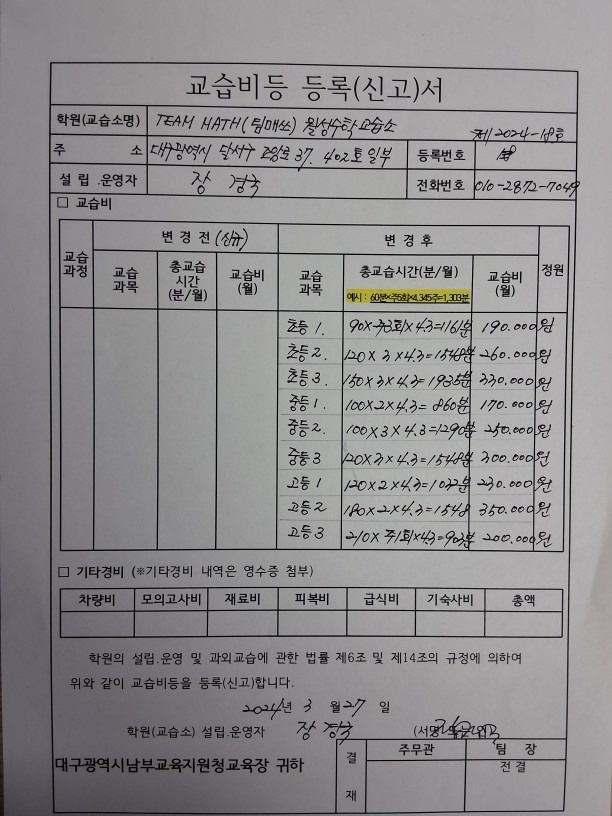 교습비등 등록(신고)서
학원(교습소명) TEAM MATH(팀매쓰) 월성수학교습소
주 소 대구광역시 달서구 조암로 37. 402호 일부 등록번호 제 2024-18호
설립.운영자 장 경국 전화번호 010-2872-7049
□ 교습비
교습과정 변경 전 (신규) 변경 후 정원
교습과목 총교습시간(분/월) 교습비(월) 교습과목 총교습시간(분/월) 교습비(월)
예시 : 60분×주5회×4.345주=1,303분
초등 1. 90×주3회×4.3=1161분 190.000원
초등 2. 120×3×4.3=1548분 260.000원
초등 3. 150×3×4.3=1935분 330.000원
중등 1. 100×2×4.3=860분 170.000원
중등 2. 100×3×4.3=1290분 250.000원
중등 3 120×3×4.3=1548분 300.000원
고등 1 120×2×4.3=1032분 230.000원
고등 2 180×2×4.3=1548 350.000원
고등 3 210×주1회×4.3=903분 200.000원
□ 기타경비 (※기타경비 내역은 영수증 첨부)
차량비 모의고사비 재료비 피복비 급식비 기숙사비 총액
학원의 설립.운영 및 과외교습에 관한 법률 제6조 및 제14조의 규정에 의하여
위와 같이 교습비등을 등록(신고)합니다.
2024년 3 월 27 일
학원(교습소) 설립.운영자 장 경국 (서명
대구광역시남부교육지원청교육장 귀하
결재 주무관 팀 장
전결